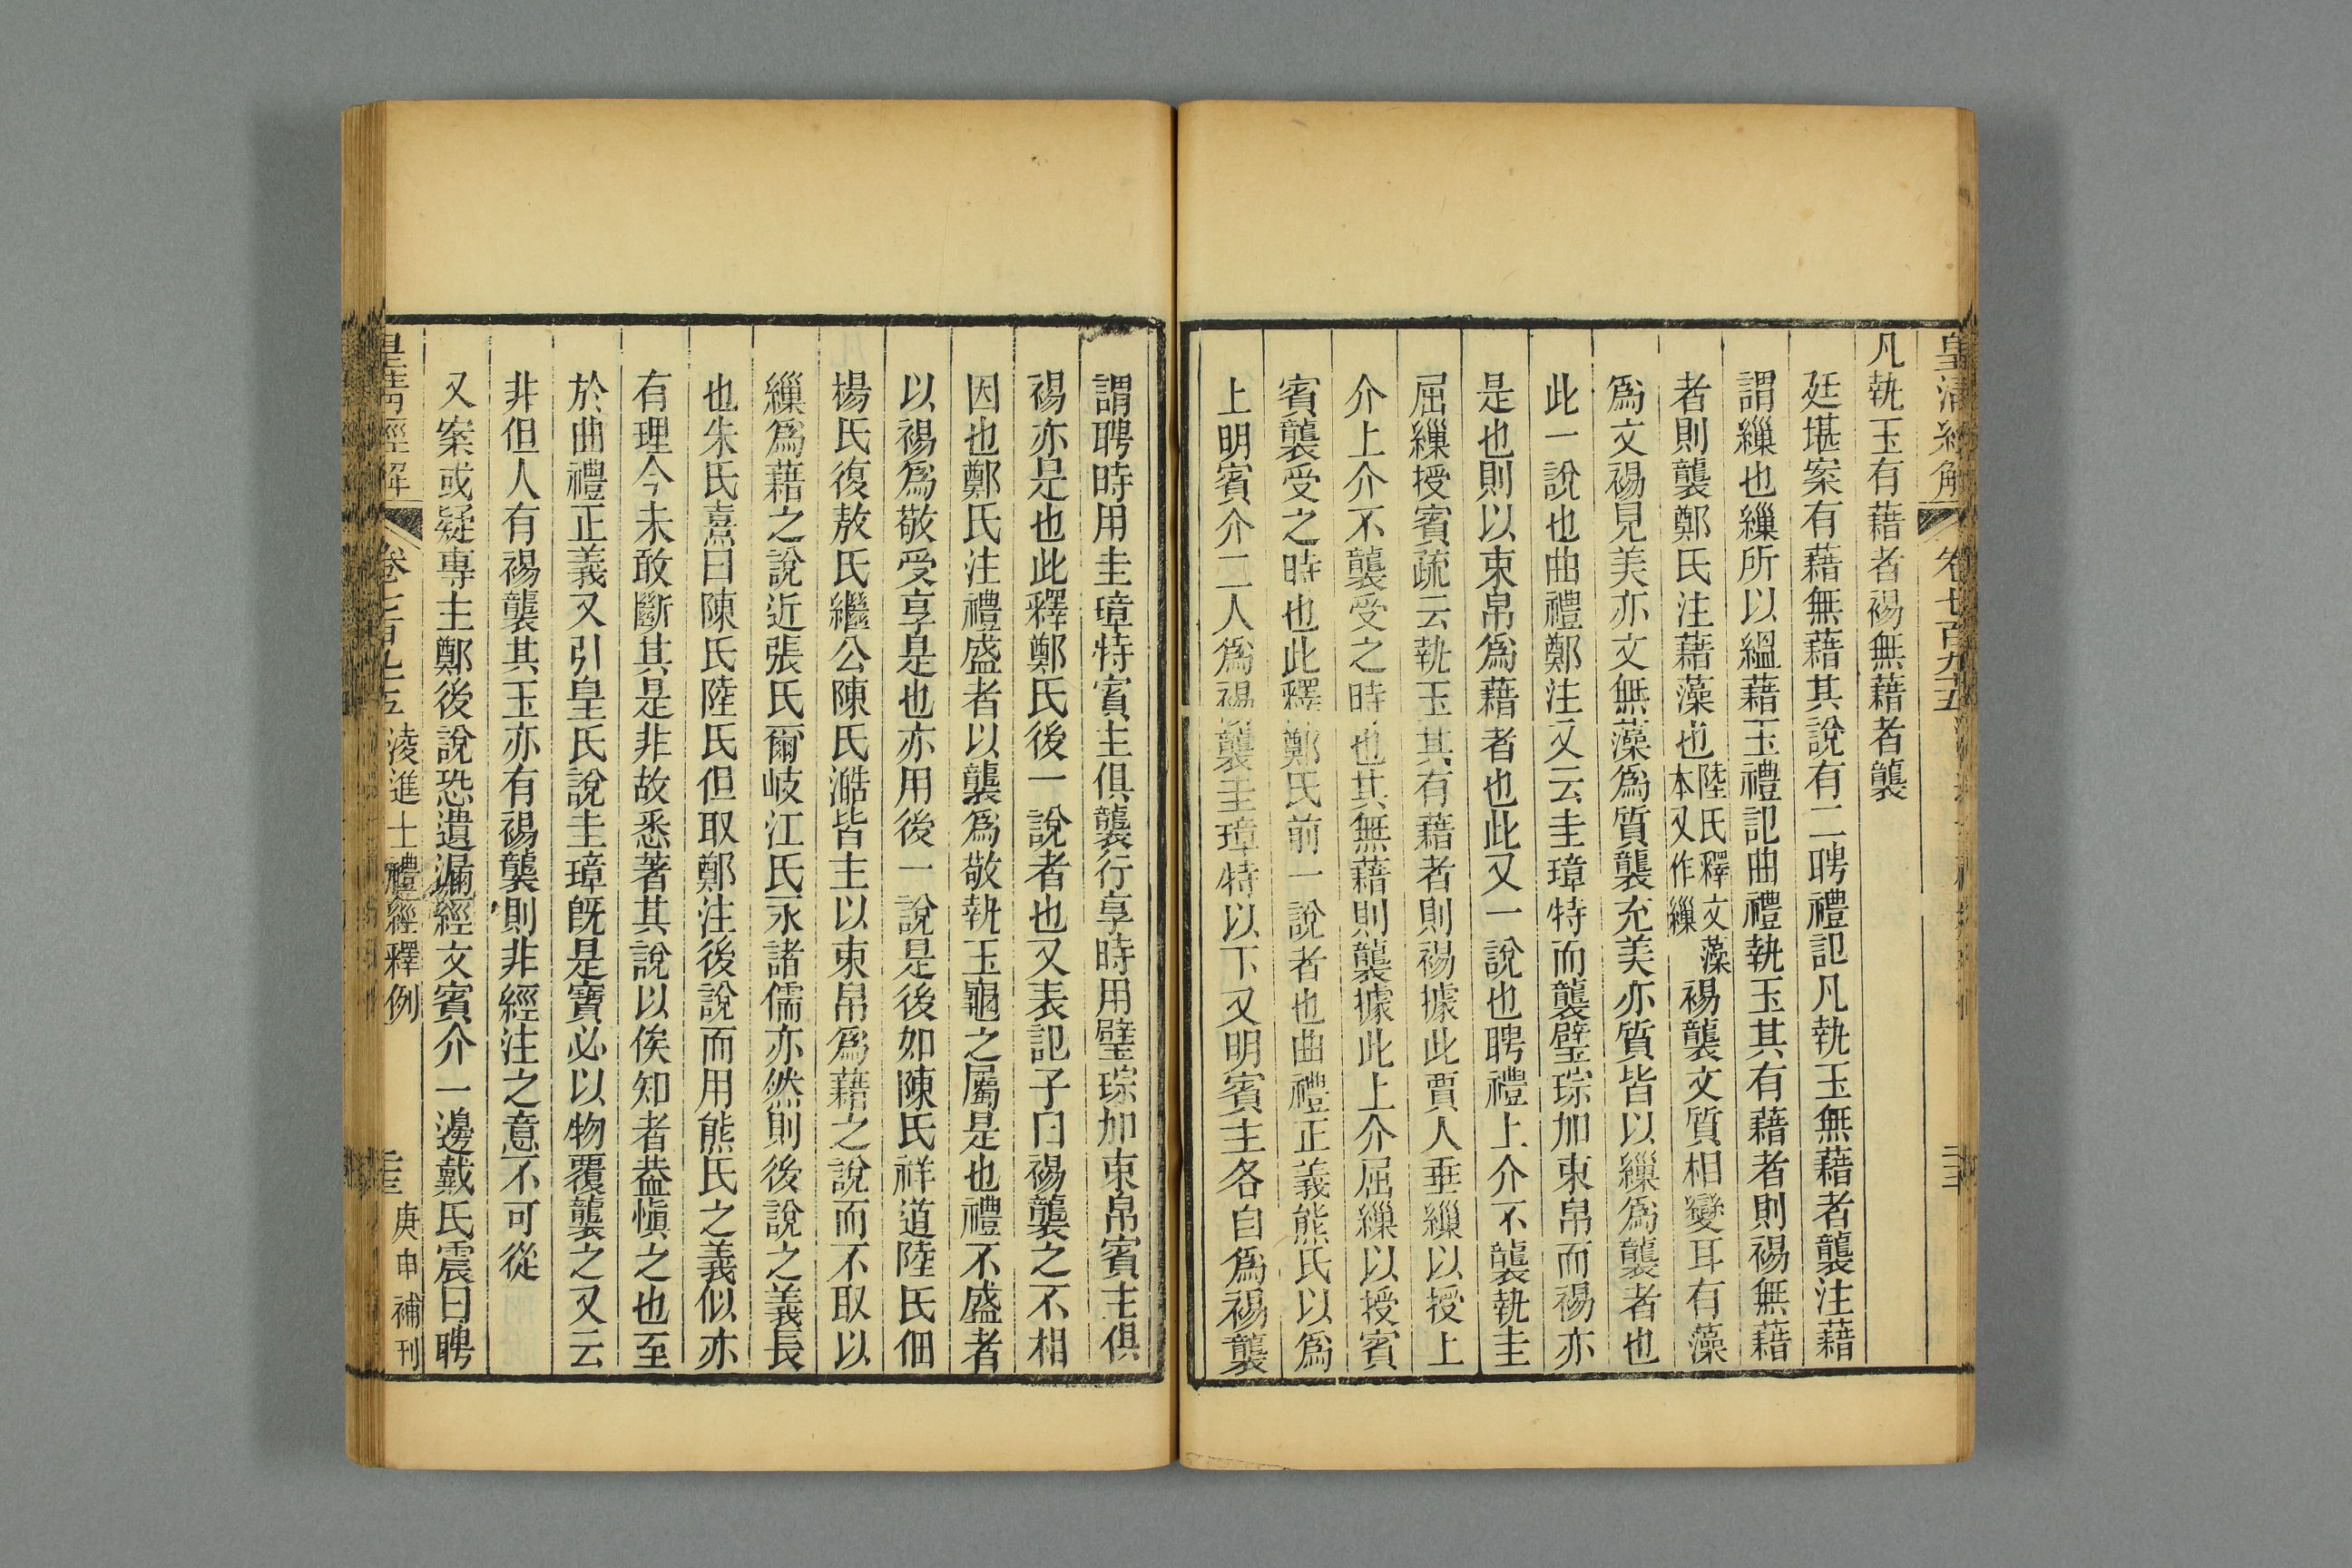 皇清經解
卷七百九五
凡執玉有藉者裼無藉者襲
廷堪案有藉無藉其說有二聘禮記凡執玉無藉者襲注藉
謂繅也繅所以縕藉玉禮記曲禮執玉其有藉者則裼無藉
者則襲鄭氏注藉藻也陸氏釋文藻本又作繅裼襲文質相變耳有藻
爲文裼見美亦文無藻爲質襲充美亦質皆以繅爲襲者也
此一說也曲禮鄭注又云圭璋特而襲璧琮加束帛而裼亦
是也則以束帛爲藉者也此又一說也聘禮上介不襲執圭
屈繅授賓疏云執玉其有藉者則裼據此賈人垂繅以授上
介上介不襲受之時也其無藉則襲據此上介屈繅以授賓
賓襲受之時也此釋鄭氏前一說者也曲禮正義熊氏以爲
上明賓介二人爲裼襲圭璋特以下又明賓主各自爲裼襲
謂聘時用圭璋特賓主俱襲行享時用璧琮加束帛賓主俱
裼亦是也此釋鄭氏後一說者也又表記子曰裼襲之不相
因也鄭氏注禮盛者以襲爲敬執玉龜之屬是也禮不盛者
以裼爲敬受享是也亦用後一說是後如陳氏祥道陸氏佃
楊氏復敖氏繼公陳氏澔皆主以束帛爲藉之說而不取以
繅爲藉之說近張氏爾岐江氏永諸儒亦然則後說之義長
也朱氏熹曰陳氏陸氏但取鄭注後說而用熊氏之義似亦
有理今未敢斷其是非故悉著其說以俟知者葢愼之也至
於曲禮正義又引皇氏說圭璋旣是寶必以物覆襲之又云
非但人有裼襲其玉亦有裼襲則非經注之意不可從
又案或疑專主鄭後說恐遺漏經文賓介一邊戴氏震曰聘
皇清經解
卷七百九五
淩進士禮經釋例
庚申補刊